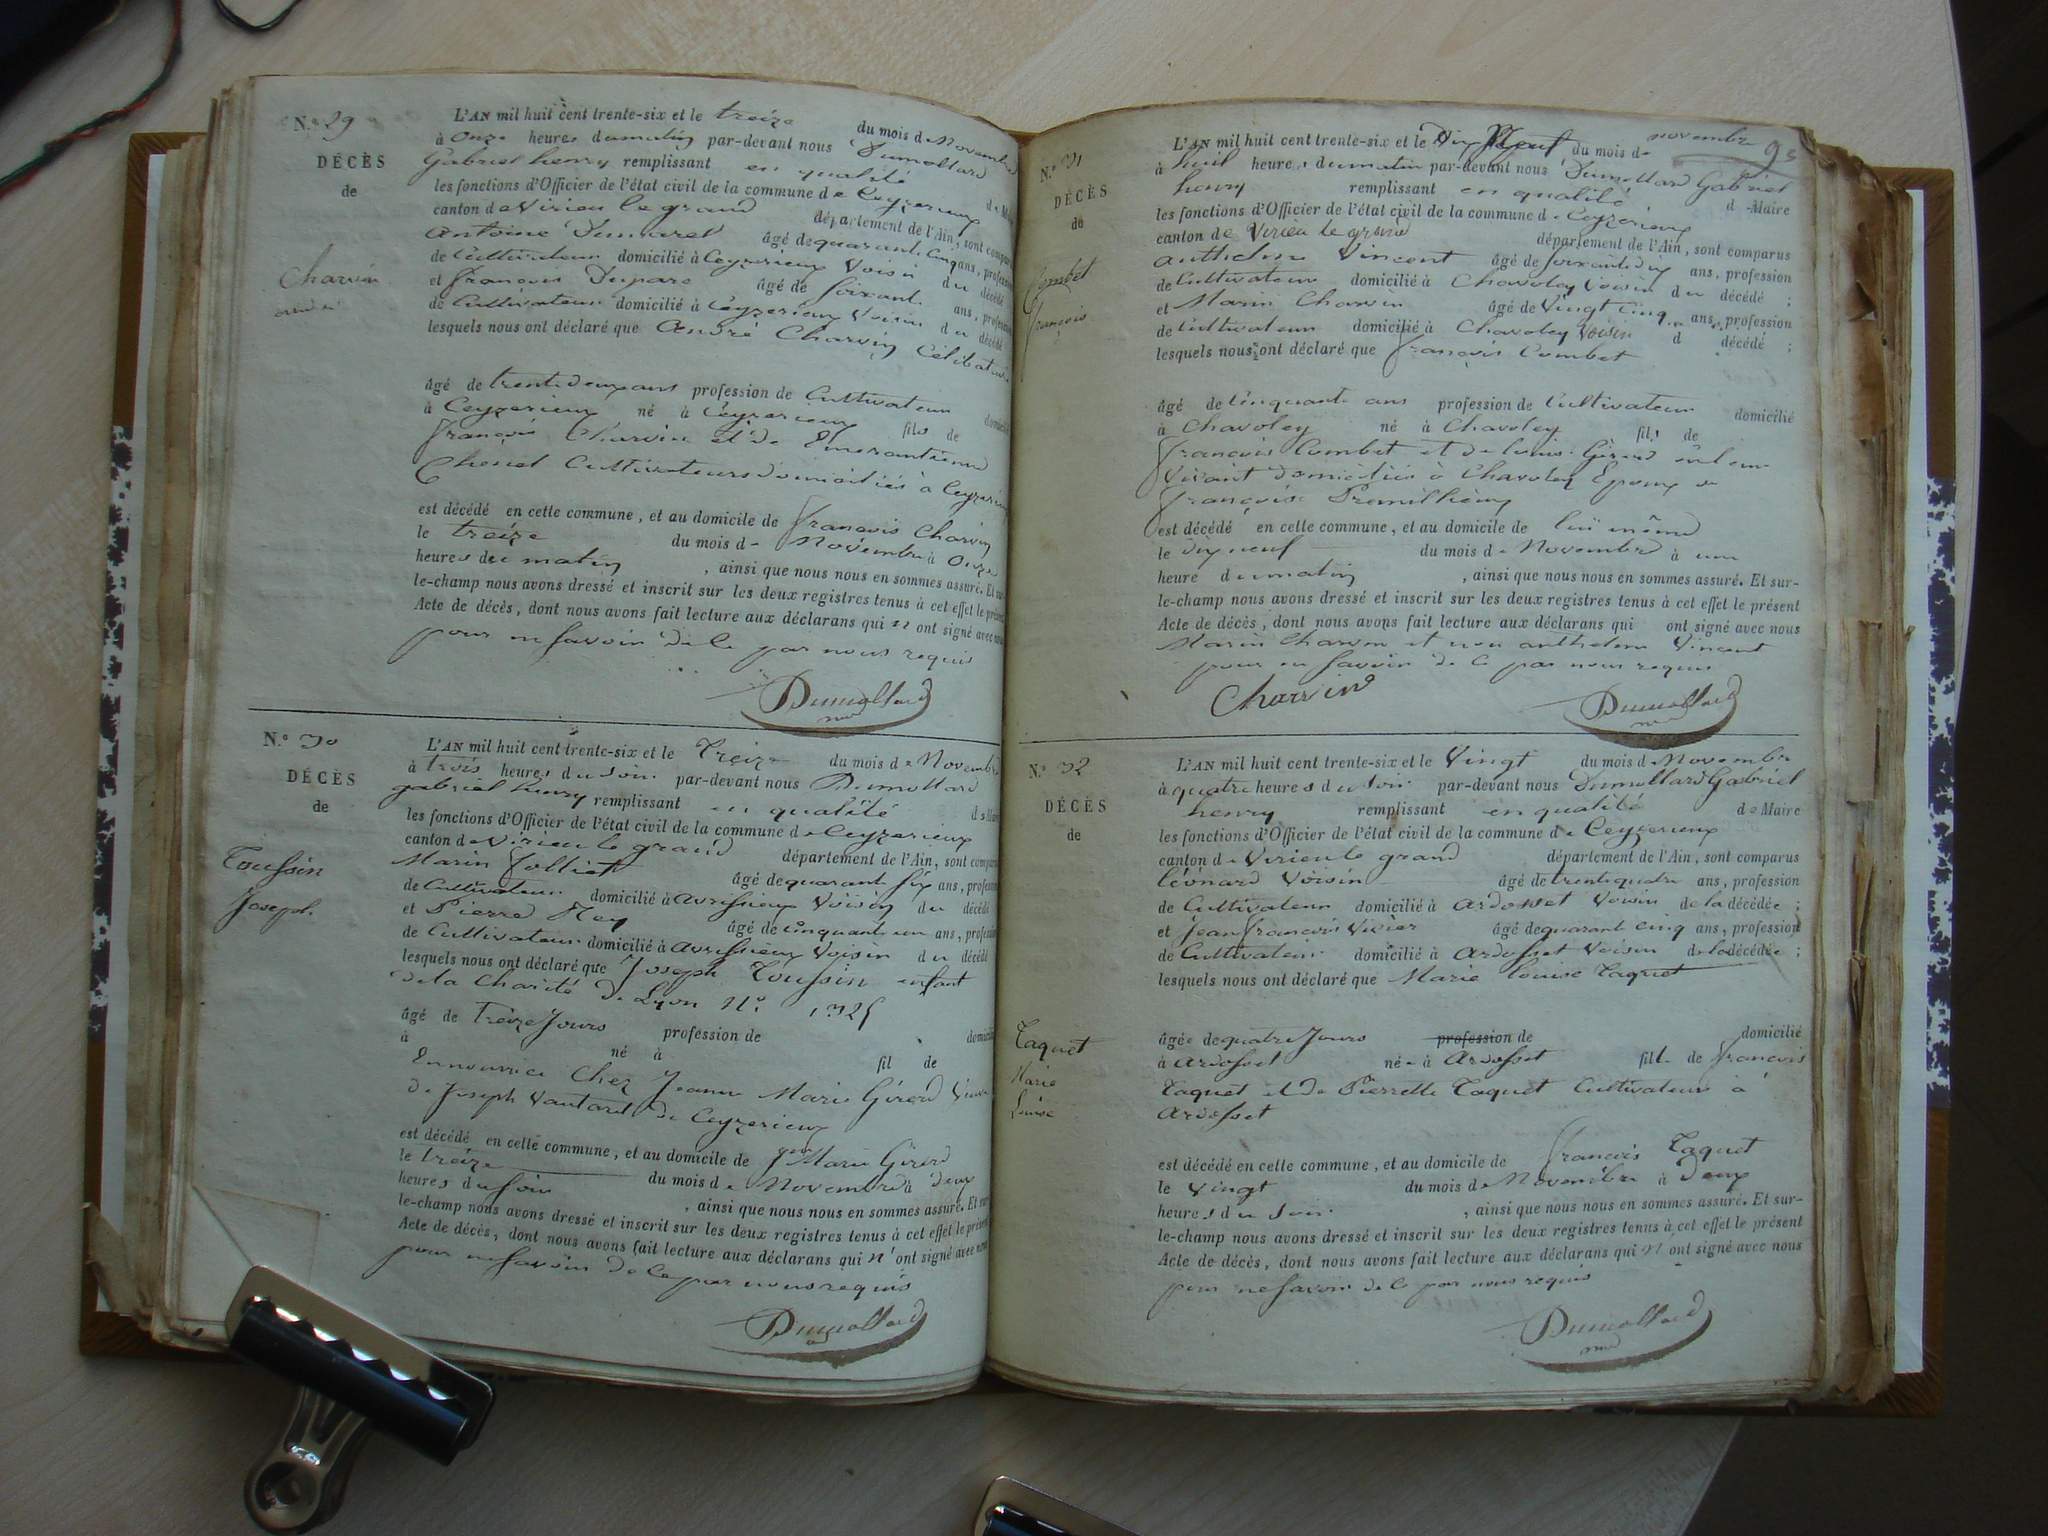 N.º 29
DÉCÈS
de
Charvin
andré
L'AN mil huit cent trente-six et le treize du mois de Novembre
à Onze heures du matin par-devant nous Dumollard
Gabriel henry remplissant en qualité de Maire
les fonctions d'Officier de l'état civil de la commune de Ceyzerieux
canton de Virieu le grand département de l'Ain, sont comparus
Antoine Dumarest âgé de quarante cinq ans, profession
de Cultivateur domicilié à Ceyzerieux Voisin du décédé
et françois Dupare âgé de soixante ans, profession
de Cultivateur domicilié à Ceyzerieux Voisin du décédé
lesquels nous ont déclaré que André Charvin Célibataire
âgé de trente deux ans profession de Cultivateur domicilié
à Ceyzerieux né à Ceyzerieux fils de
françois Charvin et de Emerantienne
Chenel Cultivateurs domiciliés à Ceyzerieux
est décédé en cette commune, et au domicile de françois Charvin
le treize du mois de Novembre à Onze
heures du matin, ainsi que nous nous en sommes assuré. Et sur-
le-champ nous avons dressé et inscrit sur les deux registres tenus à cet effet le présent
Acte de décès, dont nous avons fait lecture aux déclarans qui n ont signé avec nous
pour ne savoir de ce par nous requis
Dumollard
N.º 30
DÉCÈS
de
Toussin
Joseph
L'AN mil huit cent trente-six et le Treize du mois de Novembre
à trois heures du soir par-devant nous Dumollard
gabriel henry remplissant en qualité de Maire
les fonctions d'Officier de l'état civil de la commune de Ceyzerieux
canton de Virieu le grand département de l'Ain, sont comparus
Marin Jolliet âgé de quarante six ans, profession
de Cultivateur domicilié à avrissieux Voisin du décédé
et Pierre Rey âgé de cinquante un ans, profession
de Cultivateur domicilié à avrissieux Voisin du décédé
lesquels nous ont déclaré que Joseph Toussin enfant
de la Charité de Lyon N.º 1325
âgé de Treize Jours profession de domicilié
à né à fil de
En nourrice Chez Jeanne Marie Girerd Veuve
de Joseph Vautaret de Ceyzerieux
est décédé en cette commune, et au domicile de Jne Marie Girerd
le treize du mois de Novembre à deux
heures du soir, ainsi que nous nous en sommes assuré. Et sur-
le-champ nous avons dressé et inscrit sur les deux registres tenus à cet effet le présent
Acte de décès, dont nous avons fait lecture aux déclarans qui n'ont signé avec nous
pour ne savoir de ce par nous requis
Dumollard
93
N.º 31
DÉCÈS
de
Combet
françois
L'AN mil huit cent trente-six et le Dix Neuf du mois de novembre
à huit heures du matin par-devant nous Dumollard Gabriel
henry remplissant en qualité de Maire
les fonctions d'Officier de l'état civil de la commune de Ceyzerieux
canton de Virieu le grand département de l'Ain, sont comparus
anthelme Vincent âgé de soixante dix ans, profession
de Cultivateur domicilié à Chavoley Voisin du décédé ;
et Marin Charvin âgé de Vingt Cinq ans, profession
de Cultivateur domicilié à Chavoley Voisin d décédé ;
lesquels nous ont déclaré que françois Combet
âgé de cinquante ans profession de Cultivateur domicilié
à Chavoley né à Chavoley fils de
françois Combet et de Louise Girerd en leur
Vivant domiciliés à Chavoley Epoux de
françoise Premilhieux
est décédé en cette commune, et au domicile de lui même
le dix neuf du mois de Novembre à une
heure du matin, ainsi que nous nous en sommes assuré. Et sur-
le-champ nous avons dressé et inscrit sur les deux registres tenus à cet effet le présent
Acte de décès, dont nous avons fait lecture aux déclarans qui ont signé avec nous
Marin Charvin et non anthelme Vincent
pour ne savoir de ce par nous requis
Charvin Dumollard
N.º 32
DÉCÈS
de
Taquet
Marie
Louise
L'AN mil huit cent trente-six et le Vingt du mois de Novembre
à quatre heures du soir par-devant nous Dumollard Gabriel
henry remplissant en qualité de Maire
les fonctions d'Officier de l'état civil de la commune de Ceyzerieux
canton de Virieu le grand département de l'Ain, sont comparus
léonard Voisin âgé de trente quatre ans, profession
de Cultivateur domicilié à Ardosset Voisin de la décédée ;
et jean francois Vivier âgé de quarante cinq ans, profession
de Cultivateur domicilié à Ardosset Voisin de la décédée ;
lesquels nous ont déclaré que Marie Louise Taquet
âgée de quatre Jours profession de domicilié
à Ardosset née à Ardosset fille de francois
Taquet et de Pierrette Taquet Cultivateurs à
Ardosset
est décédé en cette commune, et au domicile de francois Taquet
le Vingt du mois de Novembre à deux
heures du soir, ainsi que nous nous en sommes assuré. Et sur-
le-champ nous avons dressé et inscrit sur les deux registres tenus à cet effet le présent
Acte de décès, dont nous avons fait lecture aux déclarans qui n ont signé avec nous
pour ne savoir de ce par nous requis
Dumollard